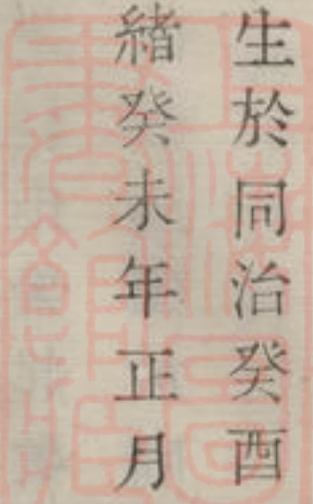 生於同治癸酉
緒癸未年正月